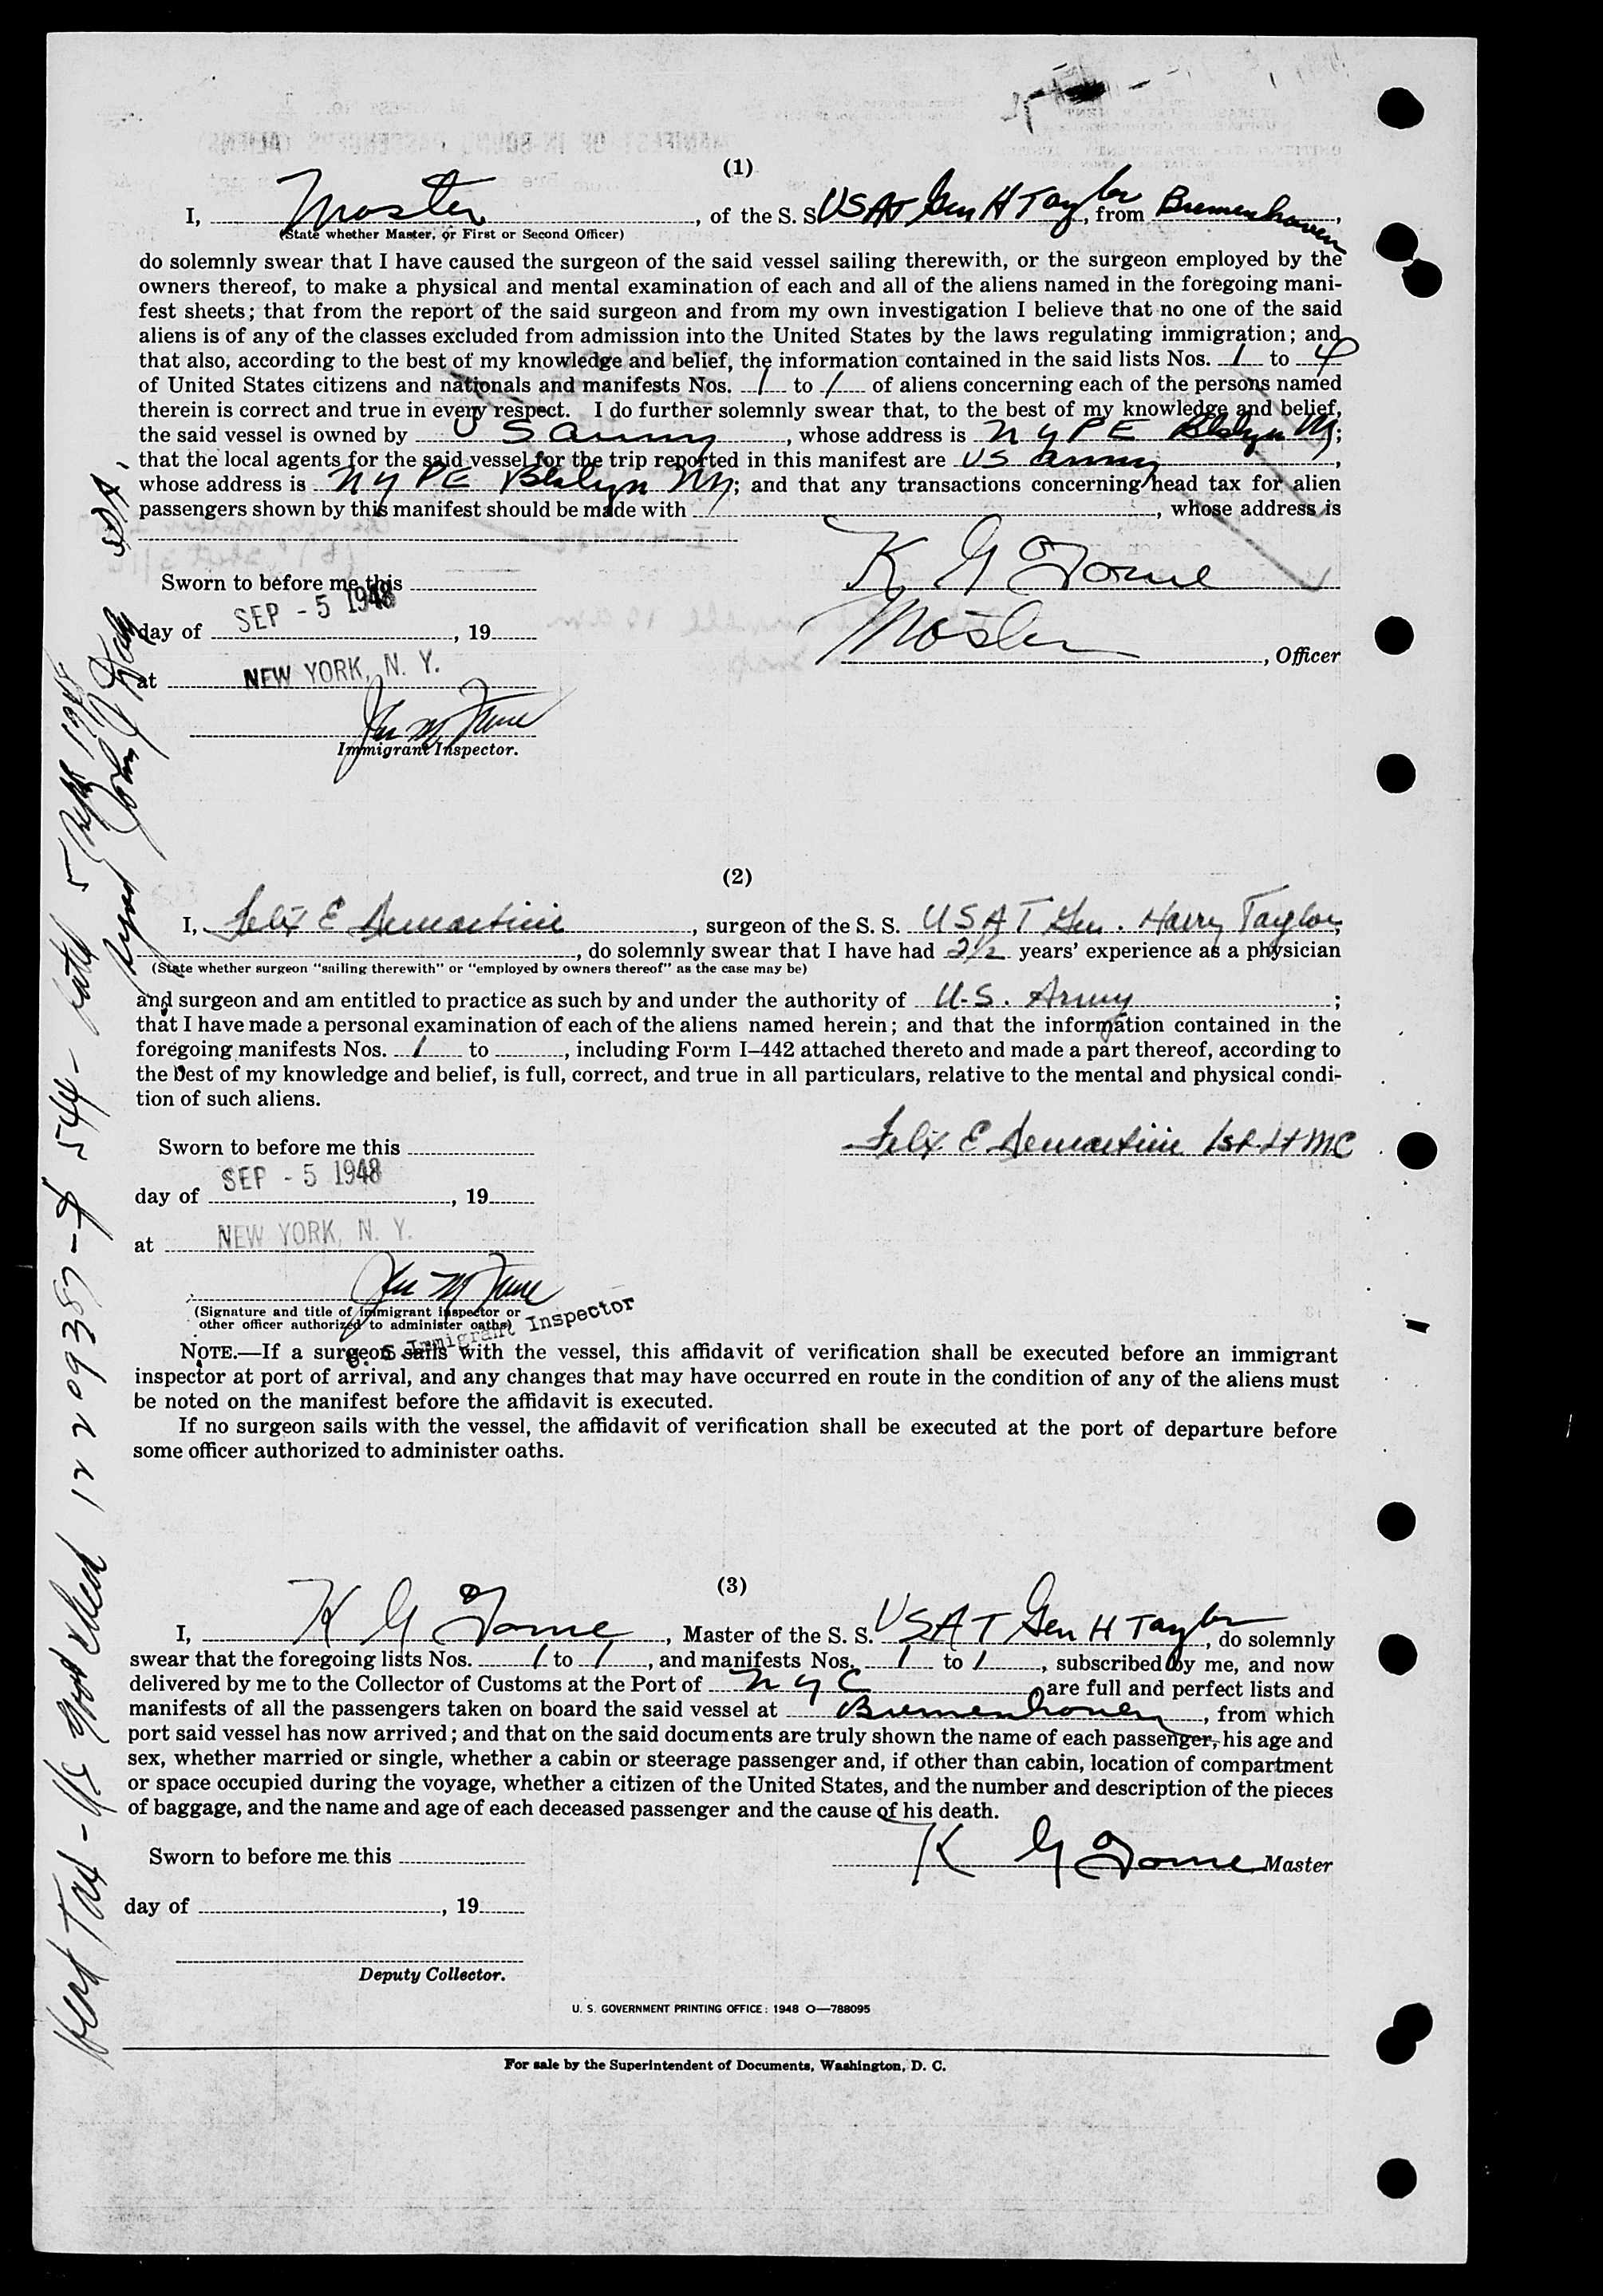 (1)
I, Master, of the S. S. USAT Gen H Taylor, from Bremenhaven,
(State whether Master, or First or Second Officer)
do solemnly swear that I have caused the surgeon of the said vessel sailing therewith, or the surgeon employed by the
owners thereof, to make a physical and mental examination of each and all of the aliens named in the foregoing mani-
fest sheets; that from the report of the said surgeon and from my own investigation I believe that no one of the said
aliens is of any of the classes excluded from admission into the United States by the laws regulating immigration; and
that also, according to the best of my knowledge and belief, the information contained in the said lists Nos. 1 to 4
of United States citizens and nationals and manifests Nos. 1 to 1 of aliens concerning each of the persons named
therein is correct and true in every respect. I do further solemnly swear that, to the best of my knowledge and belief,
the said vessel is owned by U S Army, whose address is NYPE Bklyn NY;
that the local agents for the said vessel for the trip reported in this manifest are US Army,
whose address is NYPE Bklyn NY; and that any transactions concerning head tax for alien
passengers shown by this manifest should be made with , whose address is
K G
Sworn to before me this
SEP - 5 1948
day of , 19
Master
, Officer
at NEW YORK, N. Y.
Immigrant Inspector.
(2)
I, Felix E Demartini, surgeon of the S. S. USAT Gen. Harry Taylor,
, do solemnly swear that I have had 2 1/2 years' experience as a physician
(State whether surgeon "sailing therewith" or "employed by owners thereof" as the case may be)
and surgeon and am entitled to practice as such by and under the authority of U.S. Army ;
that I have made a personal examination of each of the aliens named herein; and that the information contained in the
foregoing manifests Nos. 1 to , including Form I–442 attached thereto and made a part thereof, according to
the best of my knowledge and belief, is full, correct, and true in all particulars, relative to the mental and physical condi-
tion of such aliens.
Felix E Demartini 1st Lt MC
Sworn to before me this
SEP - 5 1948
day of , 19
at NEW YORK, N. Y.
(Signature and title of immigrant inspector or
other officer authorized to administer oaths)
U. S. Immigrant Inspector
NOTE.—If a surgeon sails with the vessel, this affidavit of verification shall be executed before an immigrant
inspector at port of arrival, and any changes that may have occurred en route in the condition of any of the aliens must
be noted on the manifest before the affidavit is executed.
If no surgeon sails with the vessel, the affidavit of verification shall be executed at the port of departure before
some officer authorized to administer oaths.
(3)
I, K G , Master of the S. S. USAT Gen H Taylor, do solemnly
swear that the foregoing lists Nos. 1 to 1, and manifests Nos. 1 to 1, subscribed by me, and now
delivered by me to the Collector of Customs at the Port of NYC are full and perfect lists and
manifests of all the passengers taken on board the said vessel at Bremenhaven, from which
port said vessel has now arrived; and that on the said documents are truly shown the name of each passenger, his age and
sex, whether married or single, whether a cabin or steerage passenger and, if other than cabin, location of compartment
or space occupied during the voyage, whether a citizen of the United States, and the number and description of the pieces
of baggage, and the name and age of each deceased passenger and the cause of his death.
K G Master
Sworn to before me this
day of , 19
Deputy Collector.
U. S. GOVERNMENT PRINTING OFFICE: 1948 O—788095
For sale by the Superintendent of Documents, Washington, D. C.
Head Tax - US Govt Check 1209387 - $544 - dated 5 Sept 1948
Signed John J